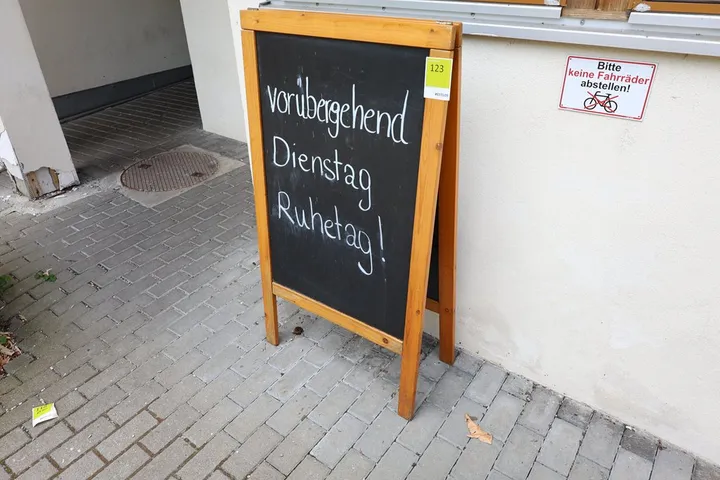 vorübergehend
Dienstag
Ruhetag!
123
Bitte
keine Fahrräder
abstellen!